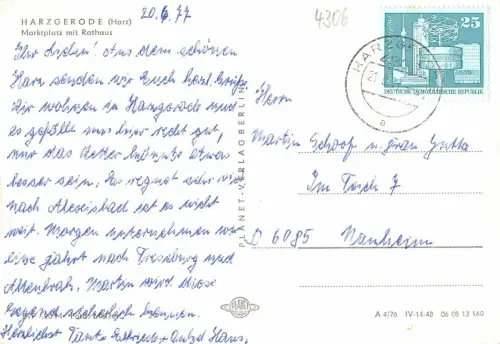 HARZGERODE (Harz)
Marktplatz mit Rathaus
20.6.77
4306
Ihr Lieben! Aus dem schönen
Harz senden wir Euch herzl. Grüße
Wir wohnen in Harzgerode und
es gefällt uns hier recht gut,
nur das Wetter könnte etwas
besser sein. Es regnet sehr viel
nach Alexisbad ist es nicht
weit. Morgen unternehmen wir
eine Fahrt nach Treseburg und
Altenbrak. Martin wird diese
Gegend sicherlich kennen.
Herzlichst Tante u. Onkel Hans,
PLANET-VERLAG BERLIN
PLANET
HARZG
25
DEUTSCHE DEMOKRATISCHE REPUBLIK
a
Herrn
Martin Schoof u. Frau Jutta
Im 7
D 6085 Nauheim
A 4/76 IV-14-48 06 08 13 160